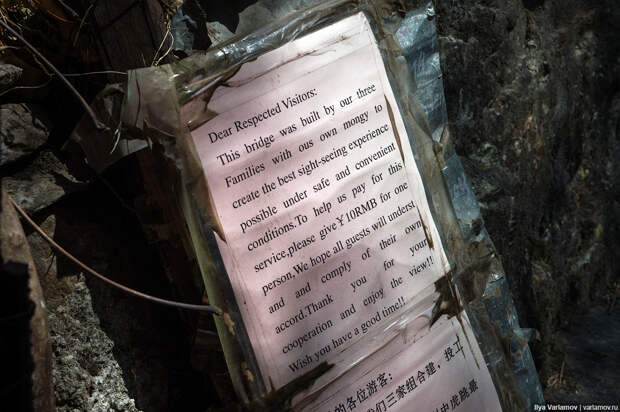 Dear Respected Visitors:
This bridge was built by our three
Families with ous own mongy to
create the best sight-seeing experience
possible under safe and convenient
conditions.To help us pay for this
service,please give¥10RMB for one
person,We hope all guests will underst
and and comply of their own
accord.Thank you for your
cooperation and enjoy the view!!
Wish you have a good time!!
的各位游客：
我们三家组合建，投工
虎跳最
Ilya Varlamov // varlamov.ru